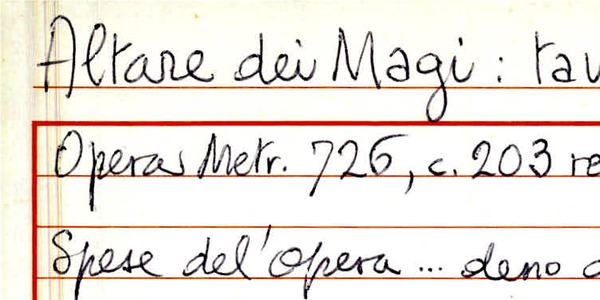 Altare dei Magi : tav
Opera Metr. 726, c. 203 re
Spese del'opera ... deno